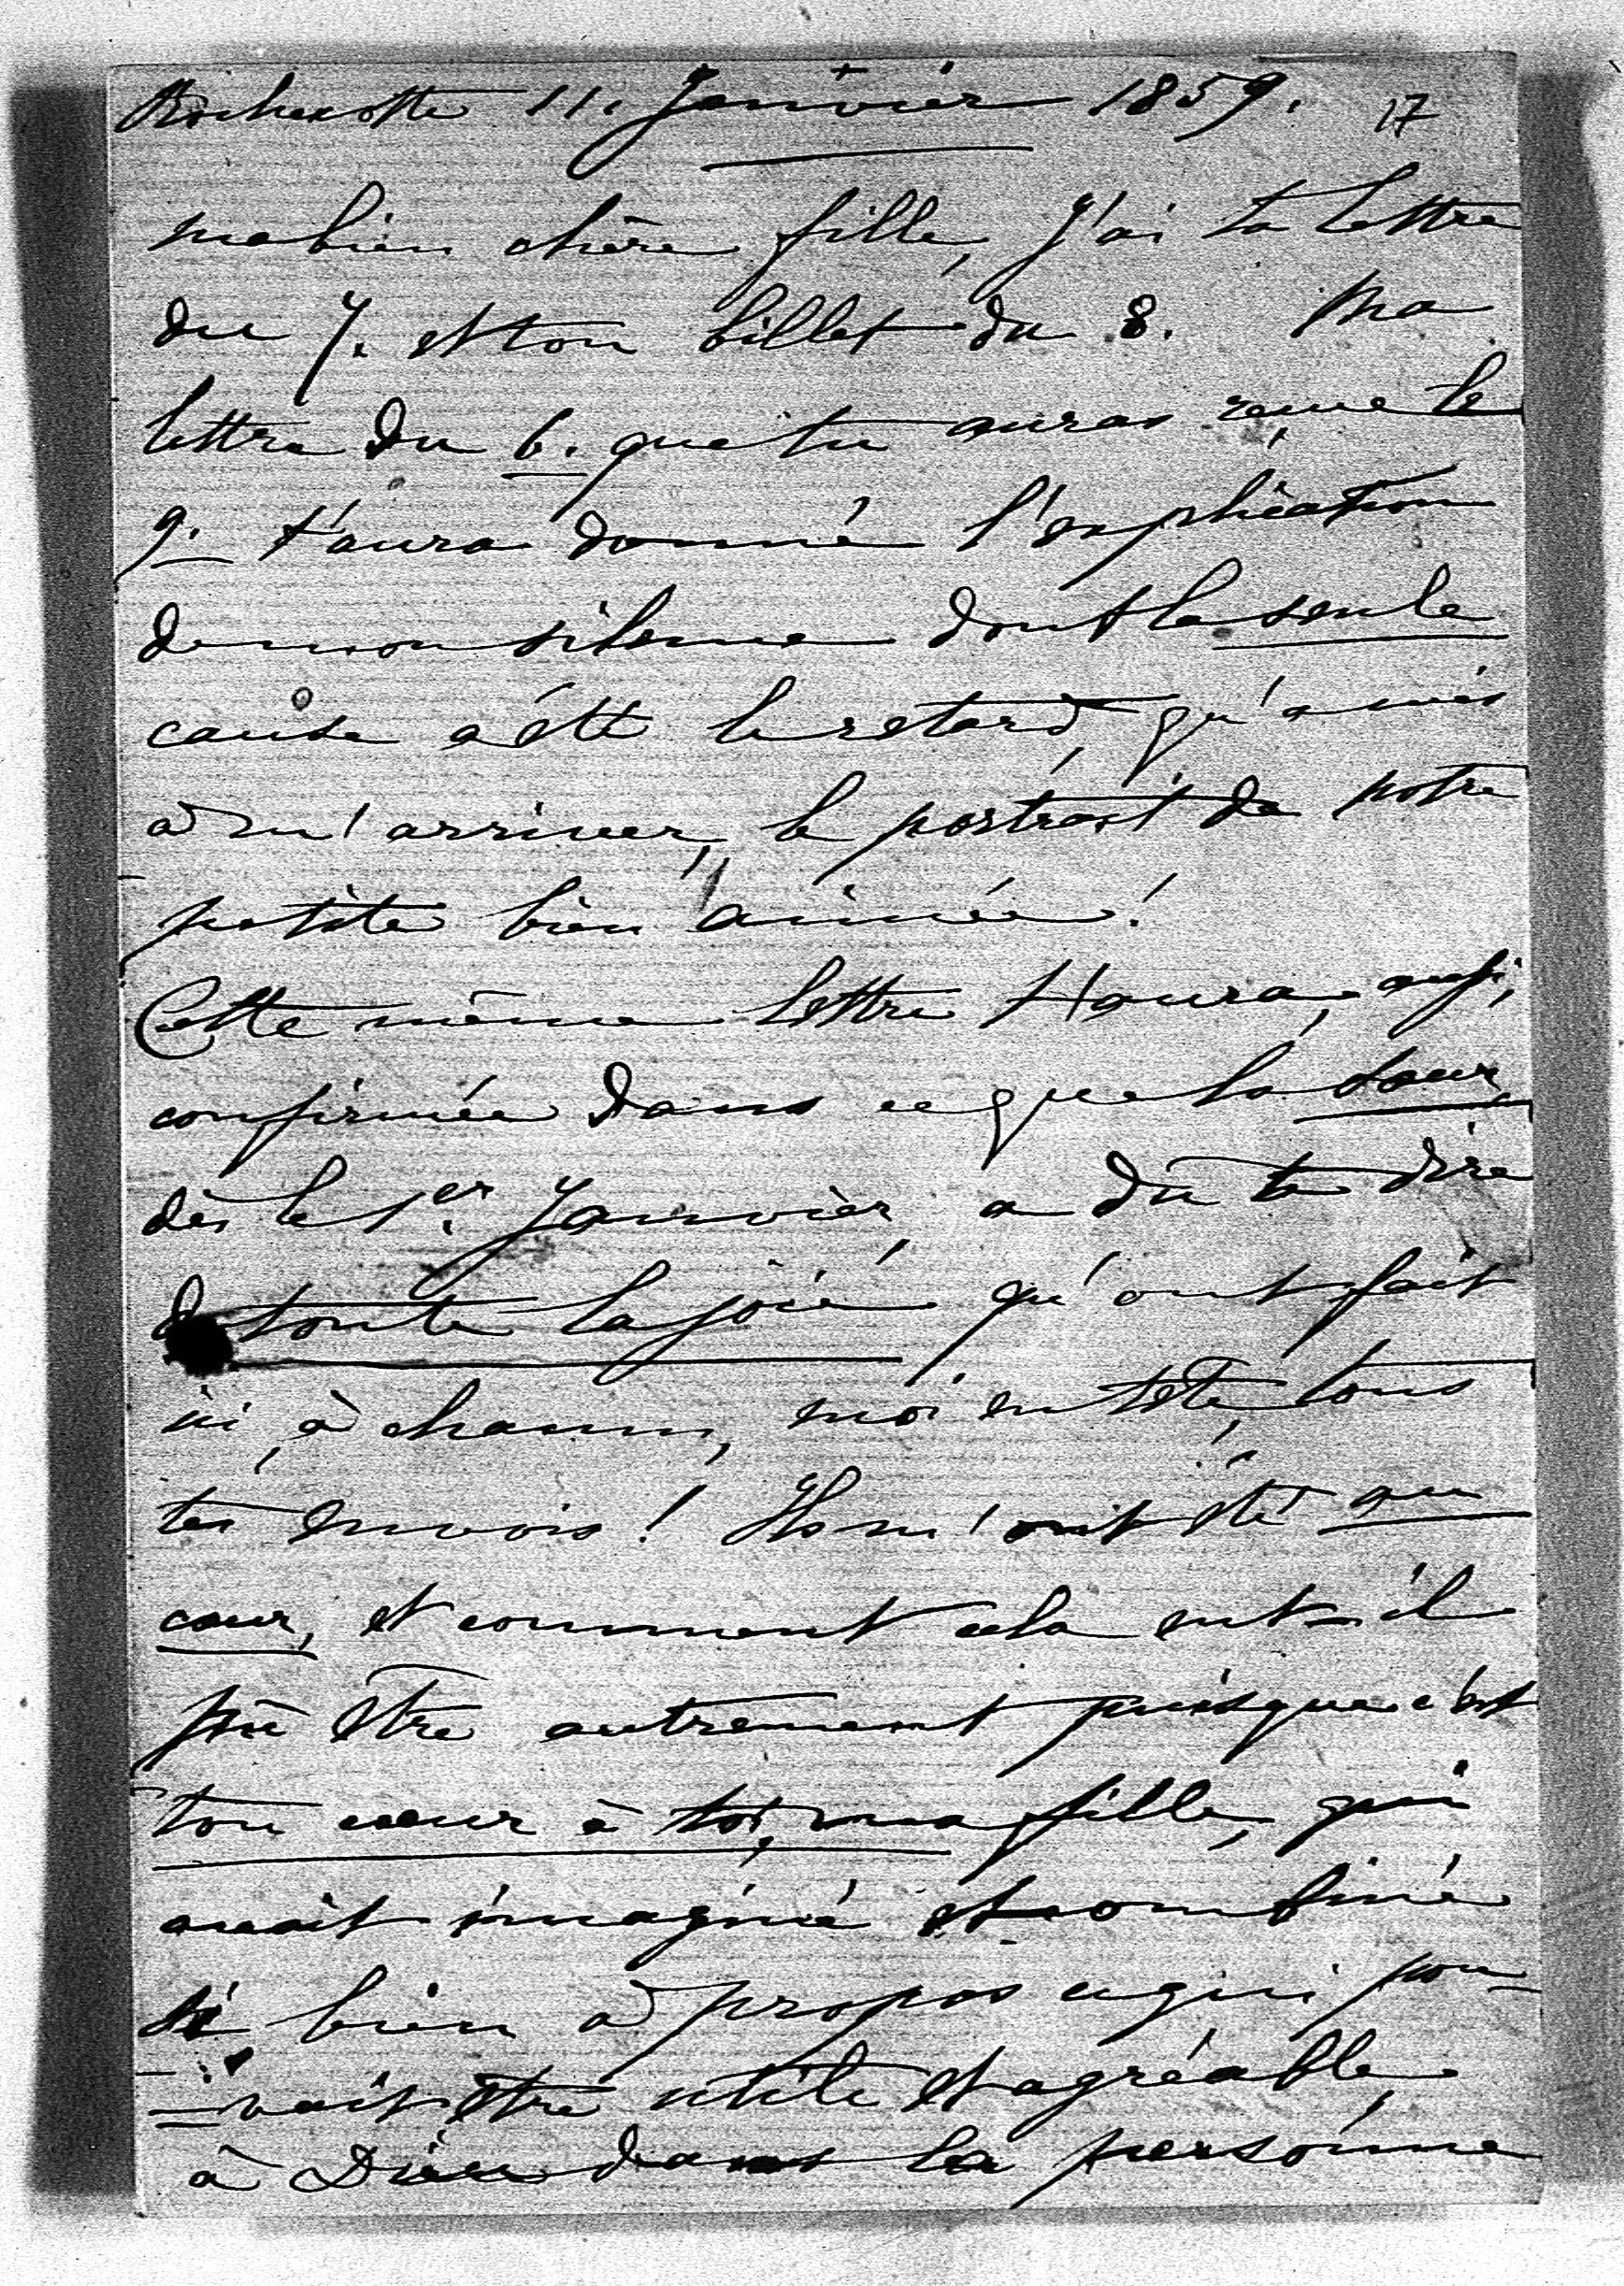 Rochecotte 11. Janvier 1859. 17
ma bien chère fille, j'ai ta lettre
du 7. et ton billet du 8. Ma
lettre du 6. que tu auras reçue le
9. t'aura donné l'explication
de mon silence dont la seule
cause a été le retard, qu'a mis
à m'arriver, le portrait de notre
petite bien aimée!
Cette même lettre t'aura, aussi,
confirmée dans ce que la sœur,
dès le 1er. Janvier, a du te dire
de toute la joie qu'ont fait
ici, à chacun, moi en tête, tous
tes envois! Ils m'ont été au
cœur, et comment cela eut-il
pû être autrement puisque c'est
ton cœur à toi, ma fille, qui
avait imaginé et combiné
si bien à propos ce qui pou-
=vait être utile et agréable,
à Dieu dans la personne